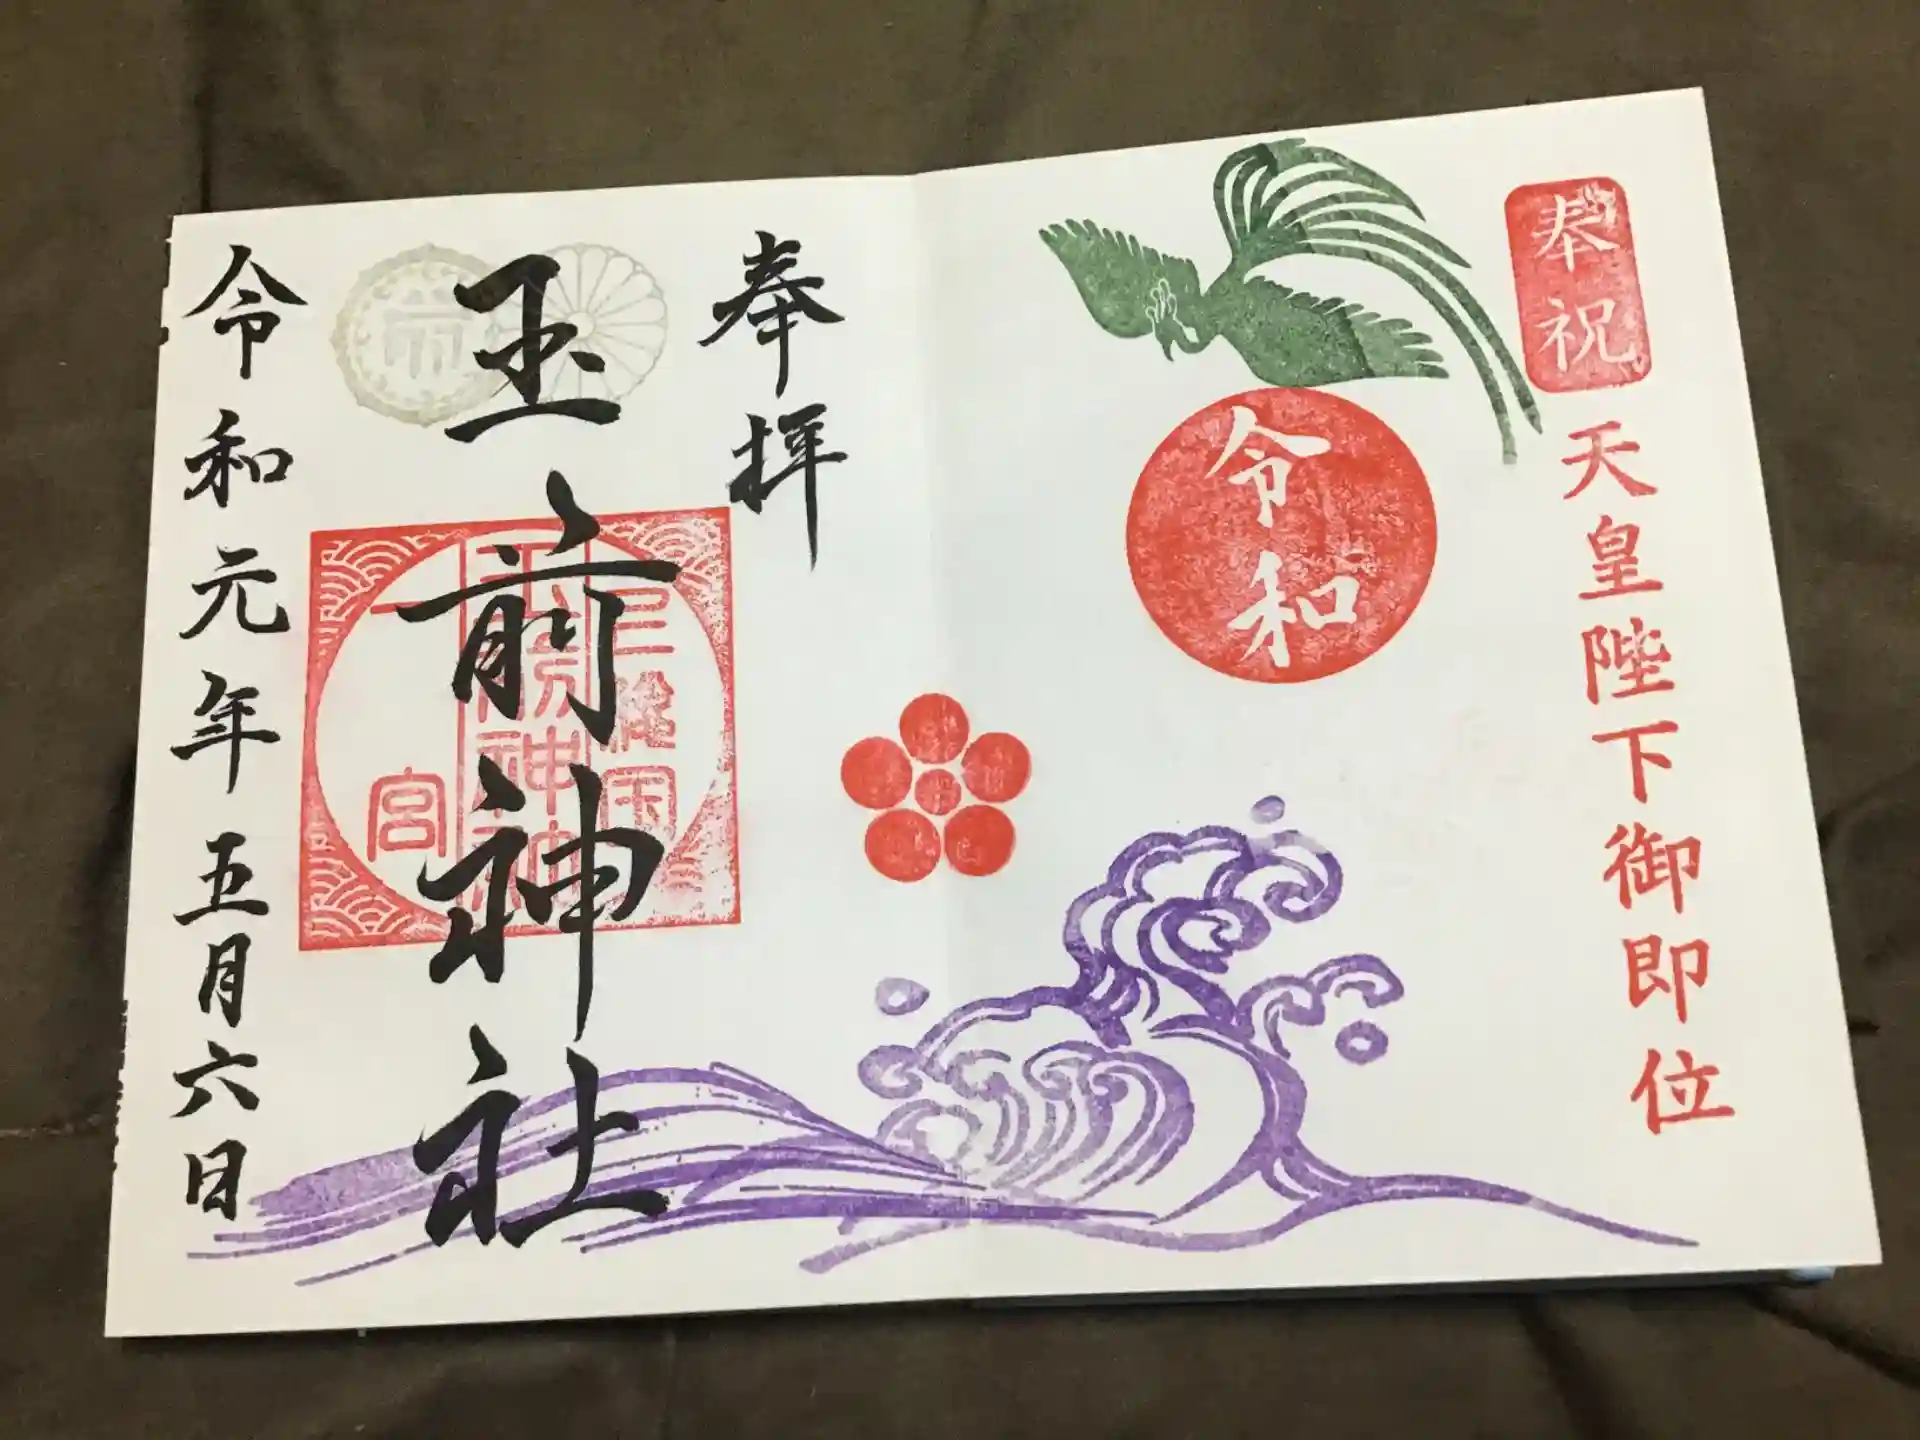 奉祝
天皇陛下御即位
令和
奉拝
玉前神社
上總国
玉前神社
一宮
令和元年五月六日